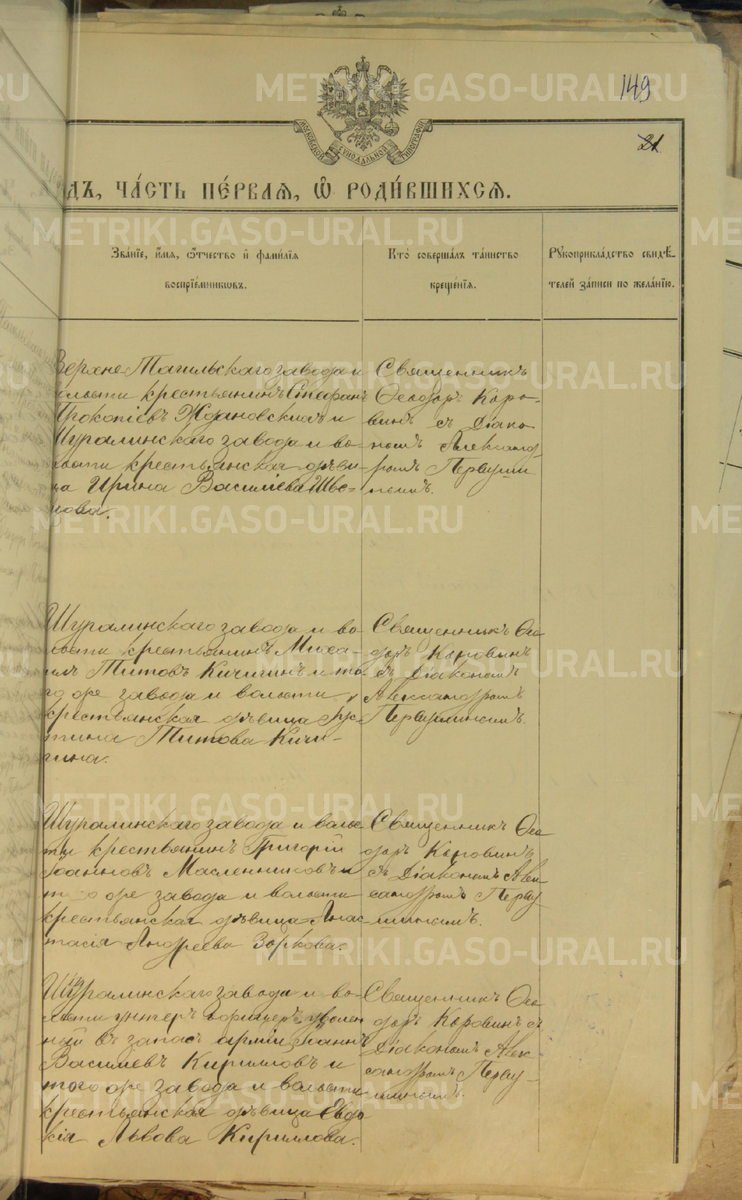 149
21
МОСКОВСКОЙ СѴНОДАЛЬНОЙ ТИПОГРАФІИ
ДЪ, ЧА́СТЬ ПЕ́РВАЯ, Ѽ РОДИ́ВШИХСЯ.
Зва́нїе, и́мя, ѻ҆́тчество и҆ фами́лїя
воспрїе́мникѡвъ.
Кто̀ соверша́лъ та́инство
креще́нїя.
Рꙋкоприкла́дство свидѣ́-
телей за́писи по жела́нїю.
Верхне-Тагильскаго завода и
волости крестьянинъ Стефанъ
Прокопіевъ Ждановскихъ и
Шуралинскаго завода и во-
лости крестьянская дѣви-
ца Ирина Василіева Шве-
цова.
Священникъ
Ѳеодоръ Коро-
винъ съ діако-
номъ Александ-
ромъ Первушин-
скимъ.
Шуралинскаго завода и во-
лости крестьянинъ Миса-
илъ Титовъ Кичигинъ и то-
го же завода и волости
крестьянская дѣвица Іус-
тина Титова Кичи-
гина.
Священникъ Ѳео-
доръ Коровинъ
съ Діакономъ
Александромъ
Первушинскимъ.
Шуралинскаго завода и волос-
ти крестьянинъ Григорій
Іоанновъ Масленниковъ и
того же завода и волости
крестьянская дѣвица Анас-
тасія Андреева Зоркова.
Священникъ Ѳео-
доръ Коровинъ
съ Діакономъ Алек-
сандромъ Перву-
шинскимъ.
Шуралинскаго завода и во-
лости унтеръ-офицеръ уволен-
ный въ запасъ арміи Іоаннъ
Василіевъ Кирилловъ и
того же завода и волости
крестьянская дѣвица Евдо-
кія Львова Кириллова.
Священникъ Ѳео-
доръ Коровинъ съ
Діакономъ Алек-
сандромъ Перву-
шинскимъ.
METRIKI.GASO-URAL.RU